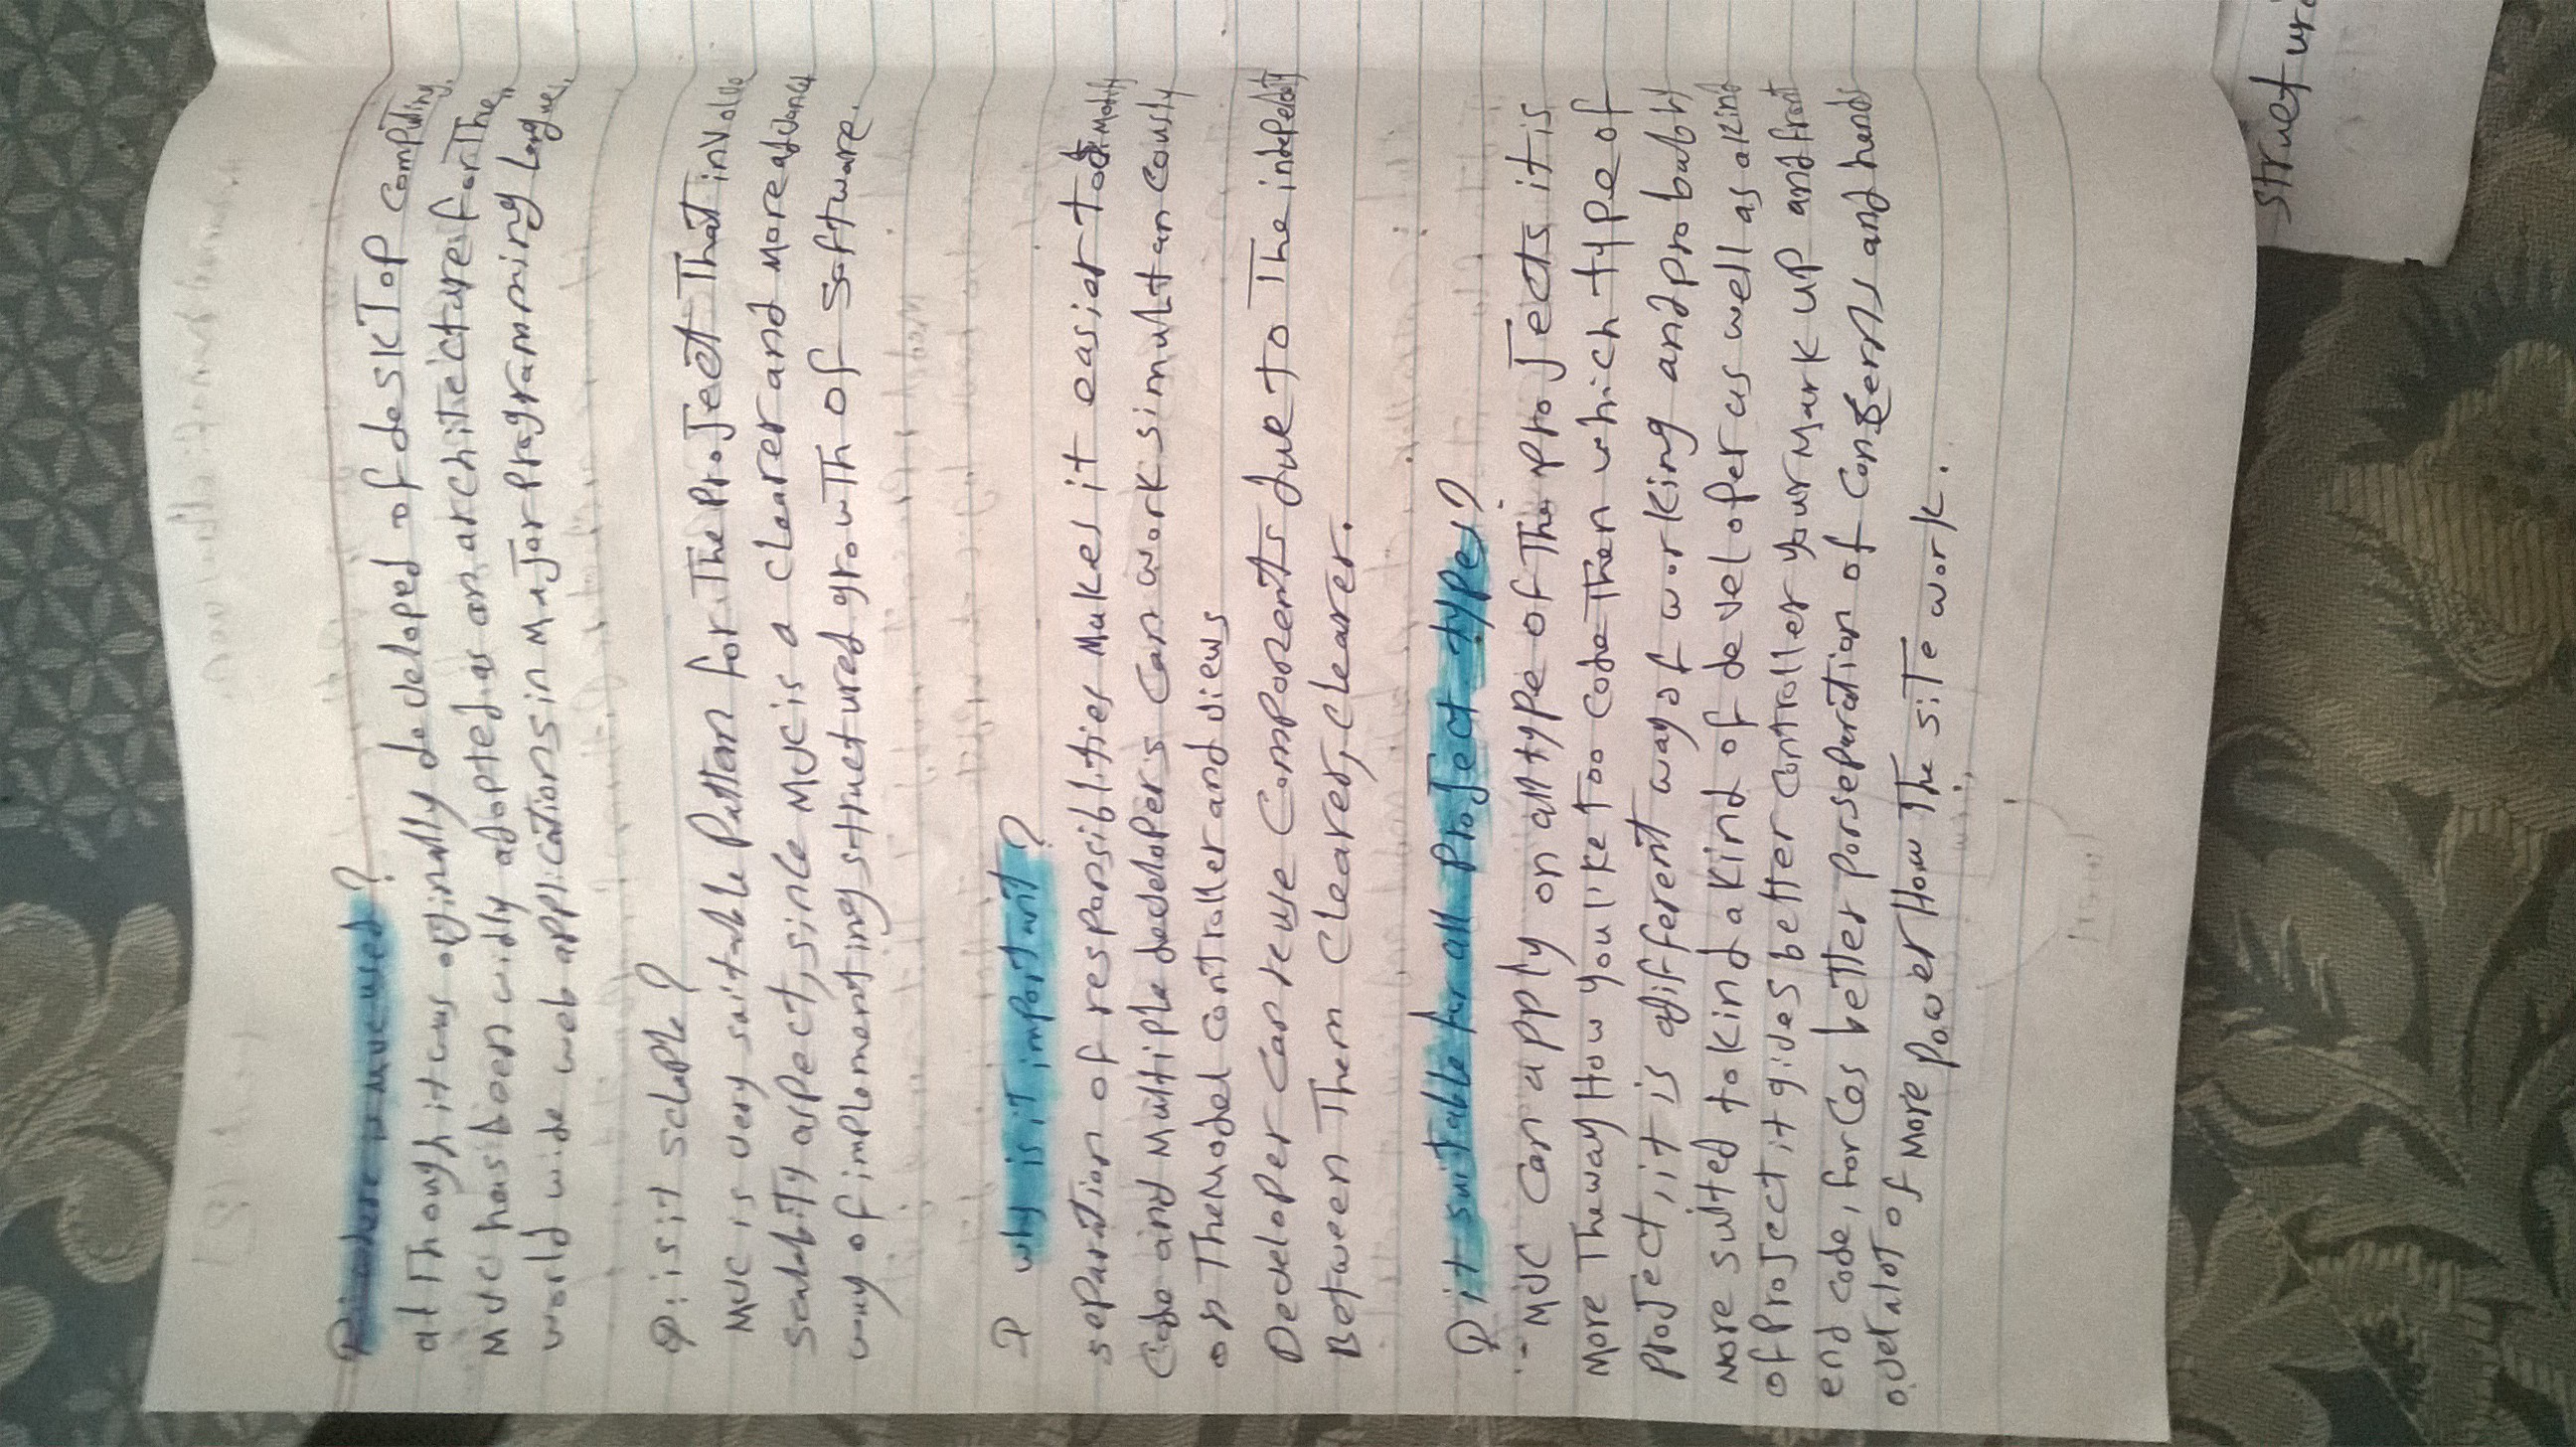 Q: where is MVC used ?
although it was orginally developed of deskTop computing,
MVC has been widly adopted as an architecture for The
world wide web applications in Major Programming
Q: is it sclaple ?
MVC is very suitable Pattern for The Project That involve
aspect, since MVC is a clearer and More advanced
way of implementing structured growth of software.
Q why is it important ?
separation of responsiblities Makes it easier to Modify
Code and Multiple developers can work simultaneously
on The Model controller and views
Developer can reuse Components due to The
Between Them clearer, clearer.
Q it suitable for all Project types ?
- MVC can apply on all type of The ProJects it is
More The way How you like Too code Then which type of
ProJect, it is a different way of working and probably
More suited to kind a kind of developer as well as a kind
of Project, it gives better controller your Mark up and front
end code, forces better separation of Concerns and hands
over a lot of More Power How The site work.
structur